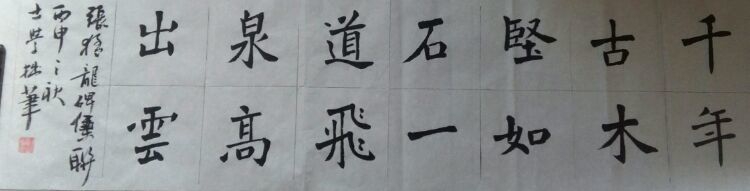 千年
古木
堅如
石一
道飛
泉高
出雲
張猛龍碑聯
丙申之秋
士學拙筆